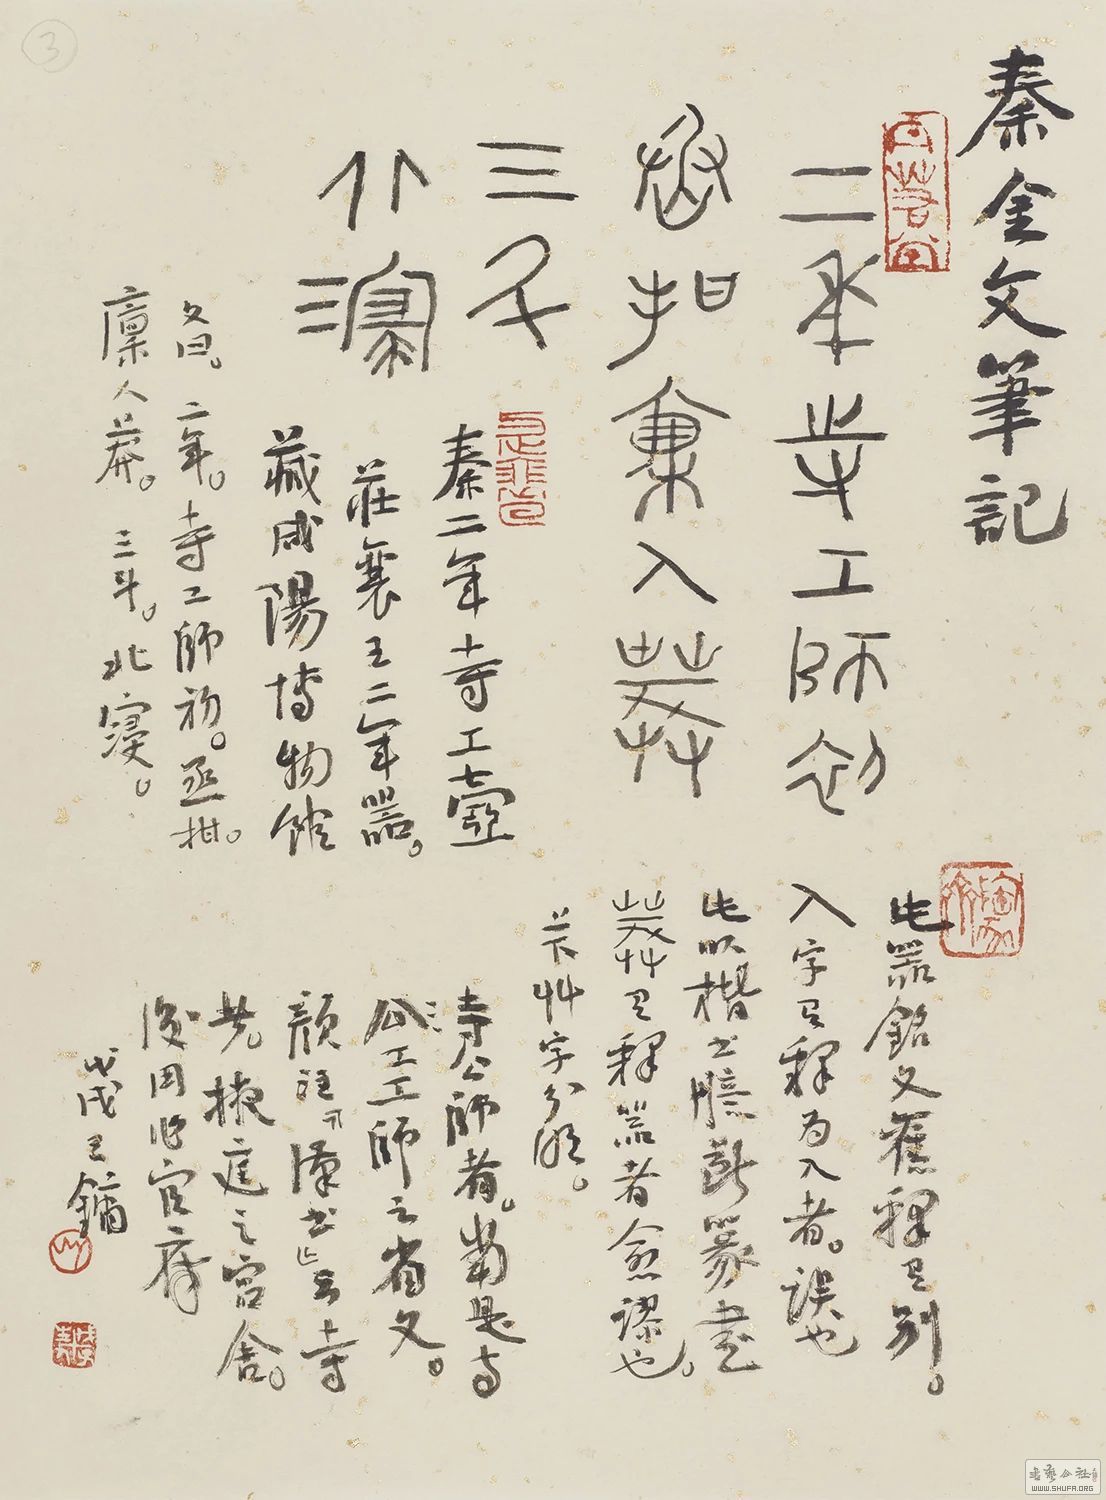 秦金文筆記
二年寺工師初
丞拑稟人莽
三斗
北寢
秦二年寺工壺
莊襄王二年器。
藏咸陽博物館
文曰。二年。寺工師初。丞拑。
廩人莽。三斗。北寢。
此器銘文舊釋有別。
入字有釋為入者。誤也
此以楷書臆斷篆書
莽有釋 者愈謬也。
艸字分明。
寺公師者。當是寺
公工工師之省文。
顏註 漢書 云寺
掖庭之官舍。
後用作官府
戊戌王鏞
3
書藝公社
WWW.SHUFA.ORG